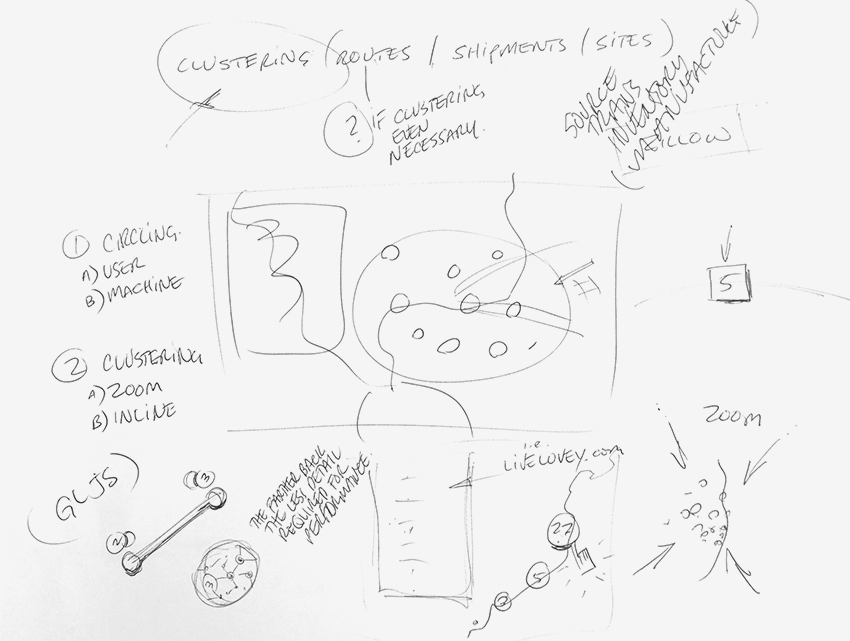 CLUSTERING (ROUTES / SHIPMENTS / SITES)
? IF CLUSTERING
EVEN
NECESSARY.
SOURCE
TRANS
INVENTORY
(MANUFACTURE)
1 CIRCLING.
A) USER
B) MACHINE
2 CLUSTERING
A) ZOOM
B) INLINE
#
5
ZOOM
(GLJS)
3
2
THE FARTHER BACK
THE LESS DETAIL
REQUIRED FOR
PERFORMANCE
i.e.
LIVELOVELY.com
27
5
2